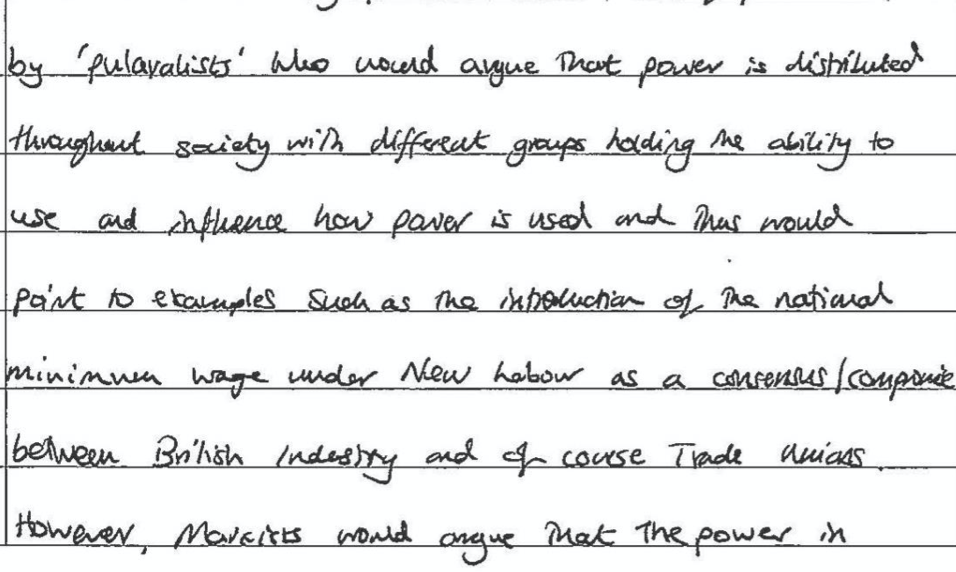 by 'pularalists' who would argue that power is distributed
throughout society with different groups holding the ability to
use and influence how power is used and thus would
point to examples such as the introduction of the national
minimum wage under New Labour as a consensus/compromise
between British Industry and of course Trade Unions.
However, Marxists would argue that the power in